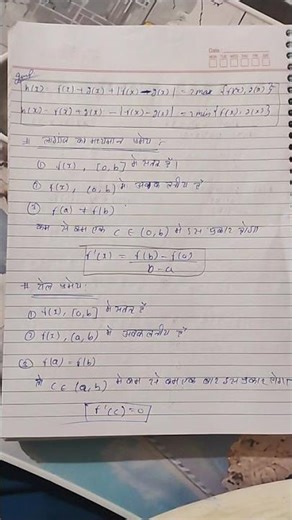 Date
h(x) = f(x) + g(x) + |f(x) - g(x)| = 2 max {f(x), g(x)}
h(x) = f(x) + g(x) - |f(x) - g(x)| = 2 min {f(x), g(x)}
# लाग्रांज का मध्यमान प्रमेय :-
① f(x), [a, b] में सतत है
② f(x), (a, b) में अवकलनीय है
③ f(a) ≠ f(b)
कम से कम एक c ∈ (a, b) में इस प्रकार होगा
f'(x) = f(b) - f(a) / b - a
# रोल प्रमेय :-
① f(x), [a, b] में सतत है
② f(x), (a, b) में अवकलनीय है
③ f(a) = f(b)
तो c ∈ (a, b) में कम से कम एक बार इस प्रकार होगा
f'(c) = 0